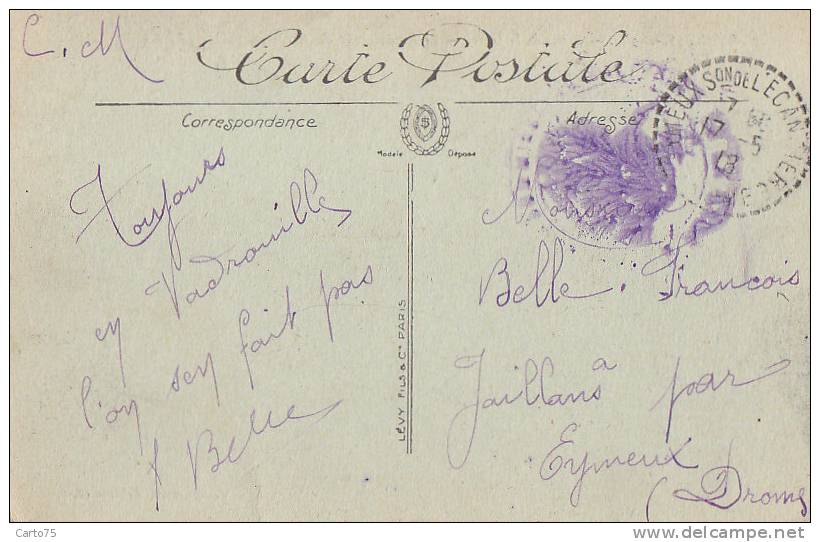 C. M
Carte Postale
Correspondance
Adresse
Modèle Déposé
Toujours
en Vadrouille
l'on sen fait pas
Belle
LÉVY FILS & Cie PARIS
SON DE LECAN
17 5
18
Monsieur
Belle. Francois
a
Jaillans par
Eymeux
(Drome
Carto75
www.delcampe.net